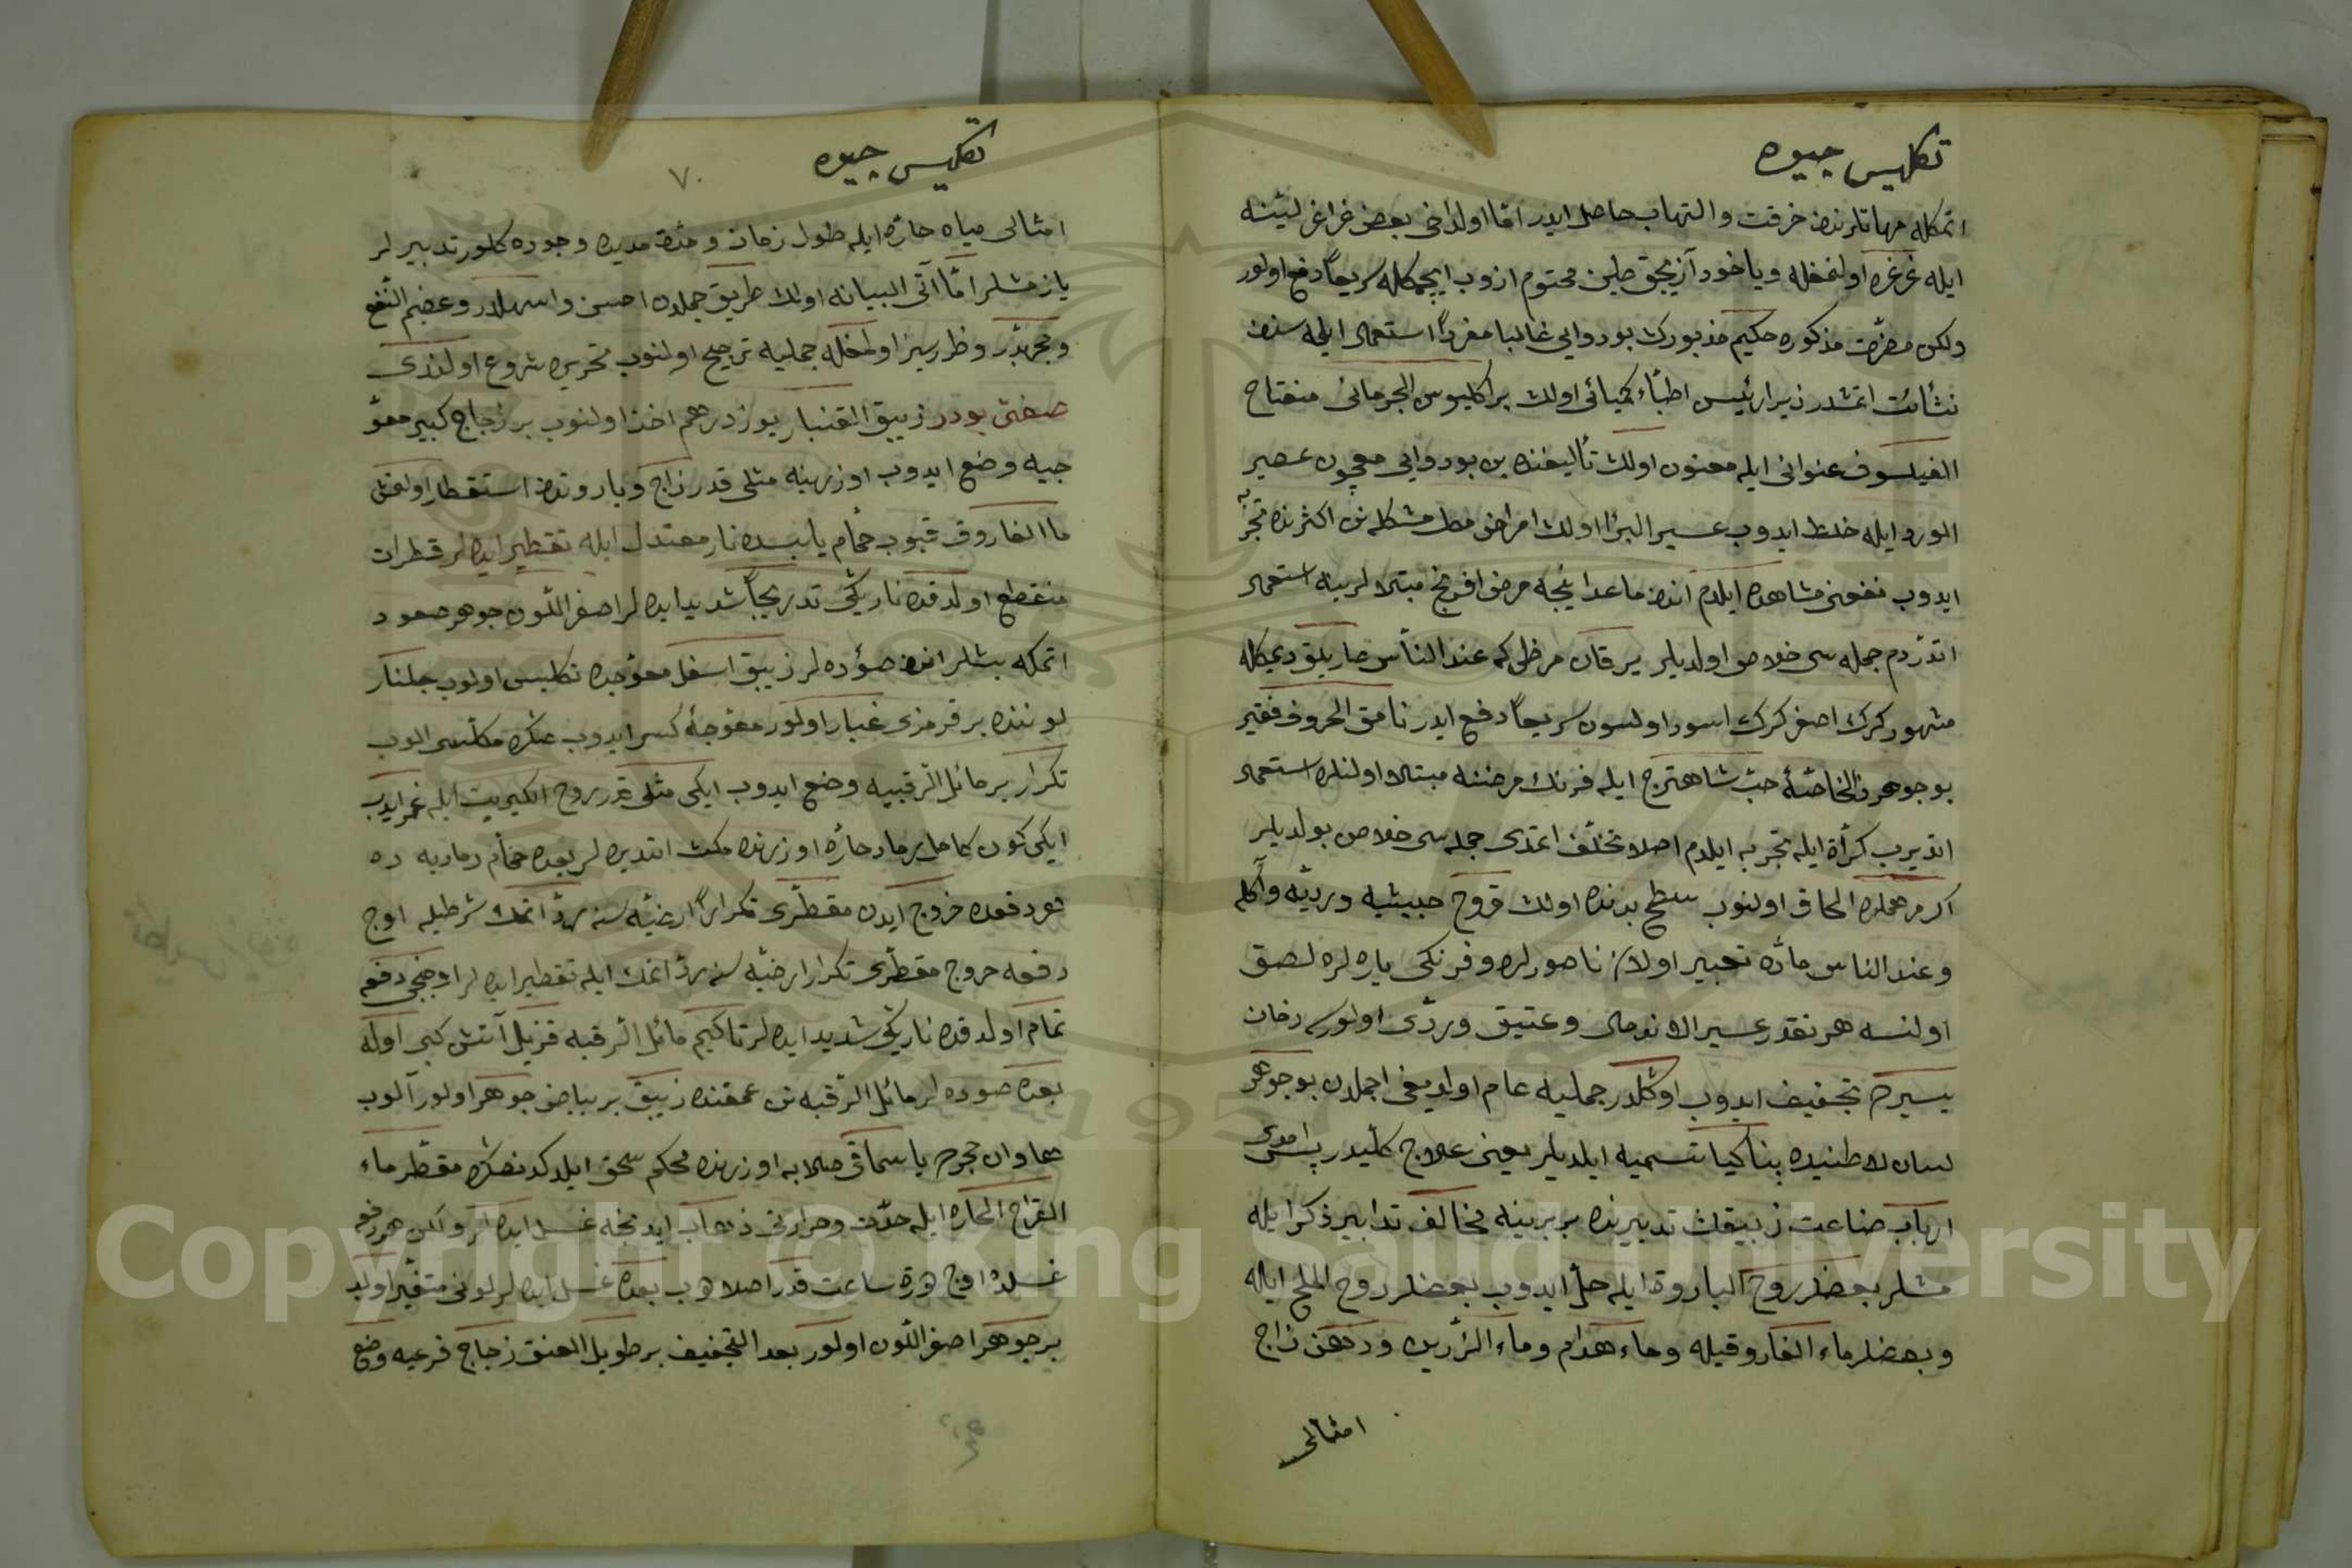 تكليس جيوه
اتمكله مهاتلرندن حرقت والتهاب حاصل ايدر اما اولدخى بعض غراغر لينه
ايله غرغره اولنمغله وياخود آزيجق طين مختوم ازوب ايچمكله سريعاً دفع اولور
ولكن مضرّت مذكوره حكيم مذبورك بو دوايى غالبا مفرداً استعمال ايلمه سندن
نشأت اتمشدر زيرا رئيس اطبّاء كيميائى اولان براكليوس الجرمانى مفتاح
الفيلسوف عنوانى ايله معنون اولان تأليفنده بن بو دوايى معجون عصير
الورد ايله خلط ايدوب عسير البرء اولان امراض مشكله نن اكثرنده تجربه
ايدوب نفعنى مشاهده ايلدم اندن ماعدا نيجه مرض افرنج مبتلالرينه استعمال
اتدردم جمله سى خلاص اولديلر يرقان مرضى كه عند الناس صاريلق ديمكله
مشهور كرك اصفر كرك اسود اولسون سريعاً دفع ايدر نامق الحروف فقير
بو جوهرى بالخاصّه حبّ شاهترج ايله فرنك مرضنه مبتلا اولنلره استعمال
اتديرب كرّاة ايله تجربه ايلدم اصلا تخلّف اتمدى جمله سى خلاص بولديلر
اكر مرهملره الحاق اولنوب سطح بدنده اولان قروح خبيثيه ورديّه وآكله
وعند الناس مادّه تعبير اولان ناصورلره وفرنكى ياره لره لصق
اولنسه هر نقدر عسير الاندمال وعتيق وردّى اولورسه زمان
يسيرده تجفيف ايدوب اوكلدر جمليه عام اولديغى اجلدن بو جوهر
لسان لاطنيده پناكيا تسميه ايلديلر يعنى علاج كلّيدر پس امدى
ارباب صناعت زيبقك تدبيرنده بربرينه مخالف تدابير ذكر ايله
مشلر بعضلر روح البارود ايله حلّ ايدوب بعضلر روح الملح ايله
وبعضلر ماء الفاروقيله وماء هدام وماء الزرين ودهن زاج
امثالى
تكليس جيوه
٧٠
امثالى مياه حارّه ايله طول زمان ومدّة مديده وجوده كلور تدبيرلر
يازمشلر امّا آتى البيانه اولان طريق جمله دن احسن واسهلدر وعظيم النفع
ومجربدر وظررسيز اولمغله جمليه ترجيح اولنوب تحريره شروع اولندى
صفتى بودر زيبق القنبار يوز درهم اخذ اولنوب بر زجاج كبير معوّ
جيه وضع ايدوب اوزرينه مثلى قدر زاج وبارودن استقطار اولنمش
ماالفاروق قيوب حمّام يابسده نار معتدل ايله تقطير ايده لر قطرات
منقطع اولدقده ناريكى تدريجاً شديد ايده لر اصفر اللون جوهر صعود
اتمكه بشلر اندن صوده لر زيبق اسفل معوجده تكليس اولوب جلنار
لوننده بر قرمزى غبار اولور معوجه كسر ايدوب شكره مكلسى الوب
تكرار بر مائل الرقبيه وضع ايدوب ايكى مثلى قدر روح الكبريت ايله غمر ايدب
ايكى كون كامل رماد حارّه اوزرنده مكث اتديره لر بعده حمّام رماديه ده
هر دفعده خروج ايدن مقطّرى تكراراً ارضيّه سنه ردّ اتمك شرطيله اوج
دفعه خروج مقطّرى تكرار ارضيّه سنه ردّ اتمك ايله تقطير ايده لر اوجنجى دفعه
تمام اولدقده ناريكى شديد ايده لر تا كيم مائل الرقبه قزيل آتش كبى اوله
بعده صوده لر مائل الرقبه نن عمقنده زيبق بر بياض جوهر اولور آلوب
هاوان حجرده يا سماقى صلابه اوزرنده محكم سحق ايلدكدنصكره مقطر ماء
القراح الحارّه ايله حدّت وحرارتى ذهاب ايدنجه غسل ايده لر ولكن هر دفعه
غسلده اوچ درت ساعت قدر اصلادب بعده غسل ايده لر لونى متغيّر اولوب
بر جوهر اصفر اللون اولور بعد التجفيف بر طويل العنق زجاج قرعيه وضع